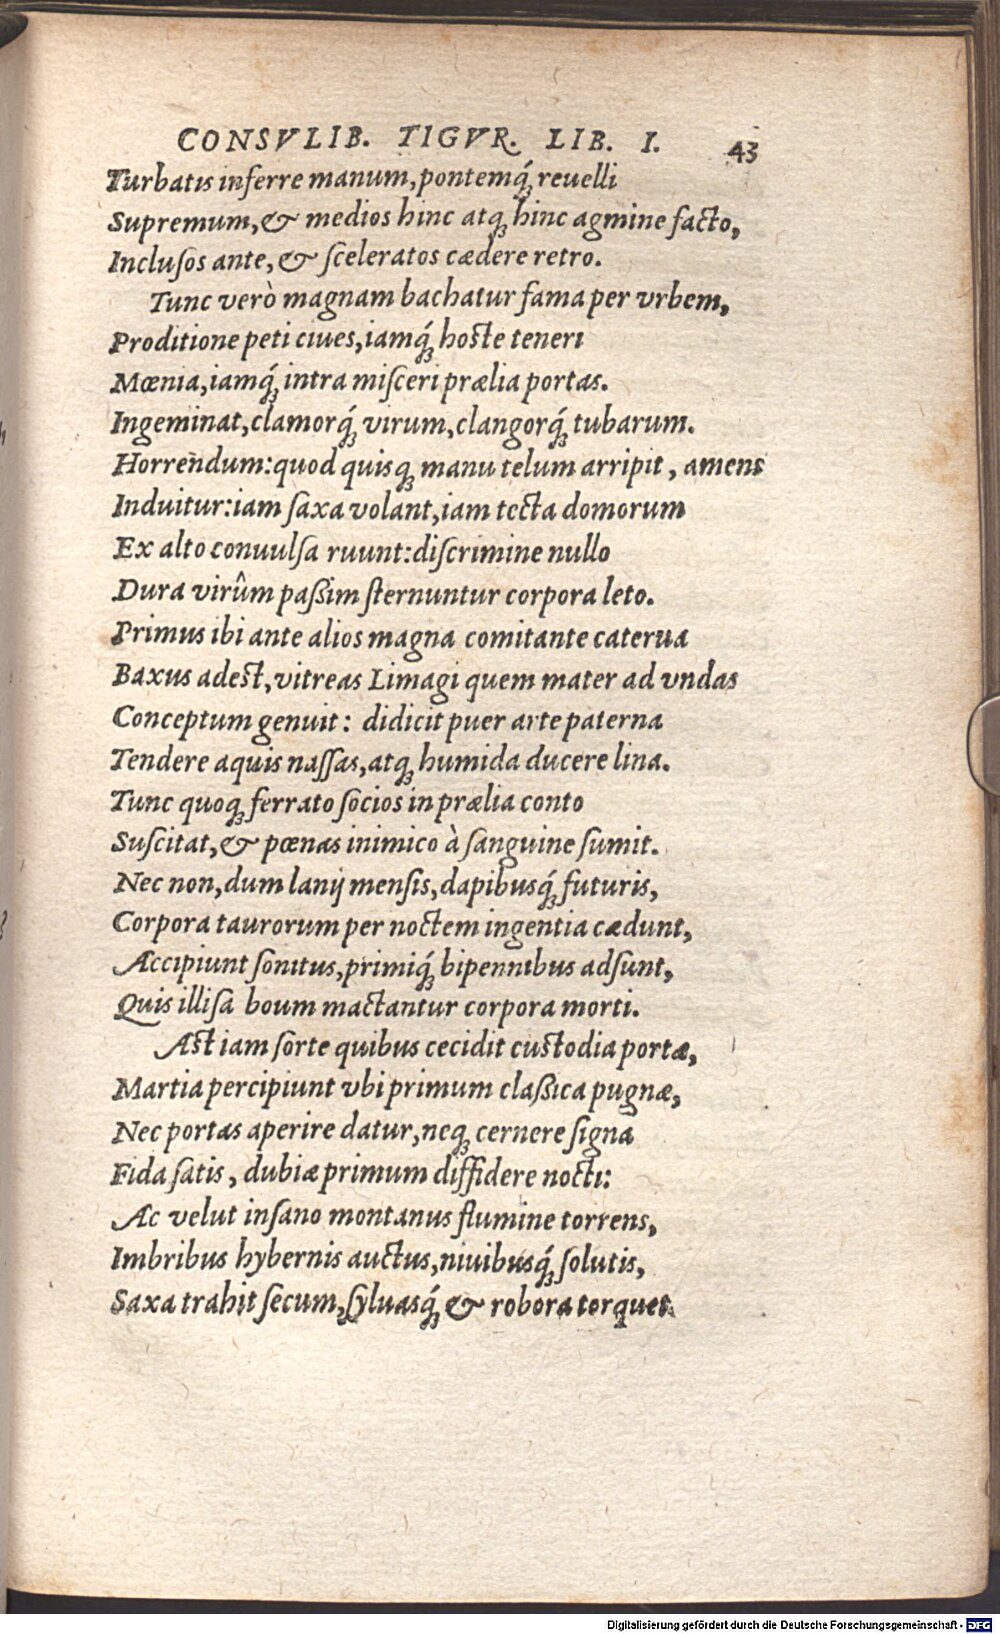 CONSVLIB. TIGVR. LIB. I. 43
Turbatis inferre manum, pontemq́; reuelli
Supremum, & medios hinc atq; hinc agmine facto,
Inclusos ante, & sceleratos cædere retro.
Tunc verò magnam bachatur fama per vrbem,
Proditione peti ciues, iamq́; hoste teneri
Mœnia, iamq́; intra misceri prælia portas.
Ingeminat, clamorq́; virum, clangorq́; tubarum.
Horrendum: quod quisq; manu telum arripit, amens
Induitur: iam saxa volant, iam tecta domorum
Ex alto conuulsa ruunt: discrimine nullo
Dura virûm paßim sternuntur corpora leto.
Primus ibi ante alios magna comitante caterua
Baxus adest, vitreas Limagi quem mater ad vndas
Conceptum genuit: didicit puer arte paterna
Tendere aquis nassas, atq; humida ducere lina.
Tunc quoq; ferrato socios in prælia conto
Suscitat, & pœnas inimico à sanguine sumit.
Nec non, dum lanij mensis, dapibusq́; futuris,
Corpora taurorum per noctem ingentia cædunt,
Accipiunt sonitus, primiq́; bipennibus adsunt,
Quis illisa boum mactantur corpora morti.
Ast iam sorte quibus cecidit custodia portæ,
Martia percipiunt vbi primum claßica pugnæ,
Nec portas aperire datur, neq; cernere signa
Fida satis, dubiæ primum diffidere nocti:
Ac velut insano montanus flumine torrens,
Imbribus hybernis auctus, niuibusq́; solutis,
Saxa trahit secum, syluasq́; & robora torquet.
Digitalisierung gefördert durch die Deutsche Forschungsgemeinschaft - DFG